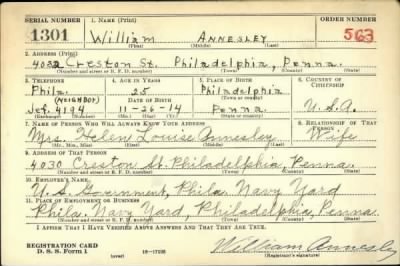 SERIAL NUMBER 1. NAME (Print) ORDER NUMBER
1301 William ANNESLEY 563
(First) (Middle) (Last)
2. ADDRESS (Print)
4032 Creston St. Philadelphia, Penna.
(Number and street or R. F. D. number) (Town) (County) (State)
3. TELEPHONE 4. AGE IN YEARS 5. PLACE OF BIRTH 6. COUNTRY OF CITIZENSHIP
Phila. 25 Philadelphia
(NEIGHBOR) DATE OF BIRTH (Town or county)
Jef. 4194 11-26-14 Penna. U.S.A.
(Exchange) (Number) (Mo.) (Day) (Yr.) (State or country)
7. NAME OF PERSON WHO WILL ALWAYS KNOW YOUR ADDRESS 8. RELATIONSHIP OF THAT PERSON
Mrs. Helen Louise Annesley Wife
(Mr., Mrs., Miss) (First) (Middle) (Last)
9. ADDRESS OF THAT PERSON
4030 Creston St. Philadelphia, Penna.
(Number and street or R. F. D. number) (Town) (County) (State)
10. EMPLOYER'S NAME
U. S. Government, Phila. Navy Yard
11. PLACE OF EMPLOYMENT OR BUSINESS
Phila. Navy Yard, Philadelphia, Penna.
(Number and street or R. F. D. number) (Town) (County) (State)
I AFFIRM THAT I HAVE VERIFIED ABOVE ANSWERS AND THAT THEY ARE TRUE.
REGISTRATION CARD
D. S. S. Form 1 (over) 16—17105 William Annesley
(Registrant's signature)